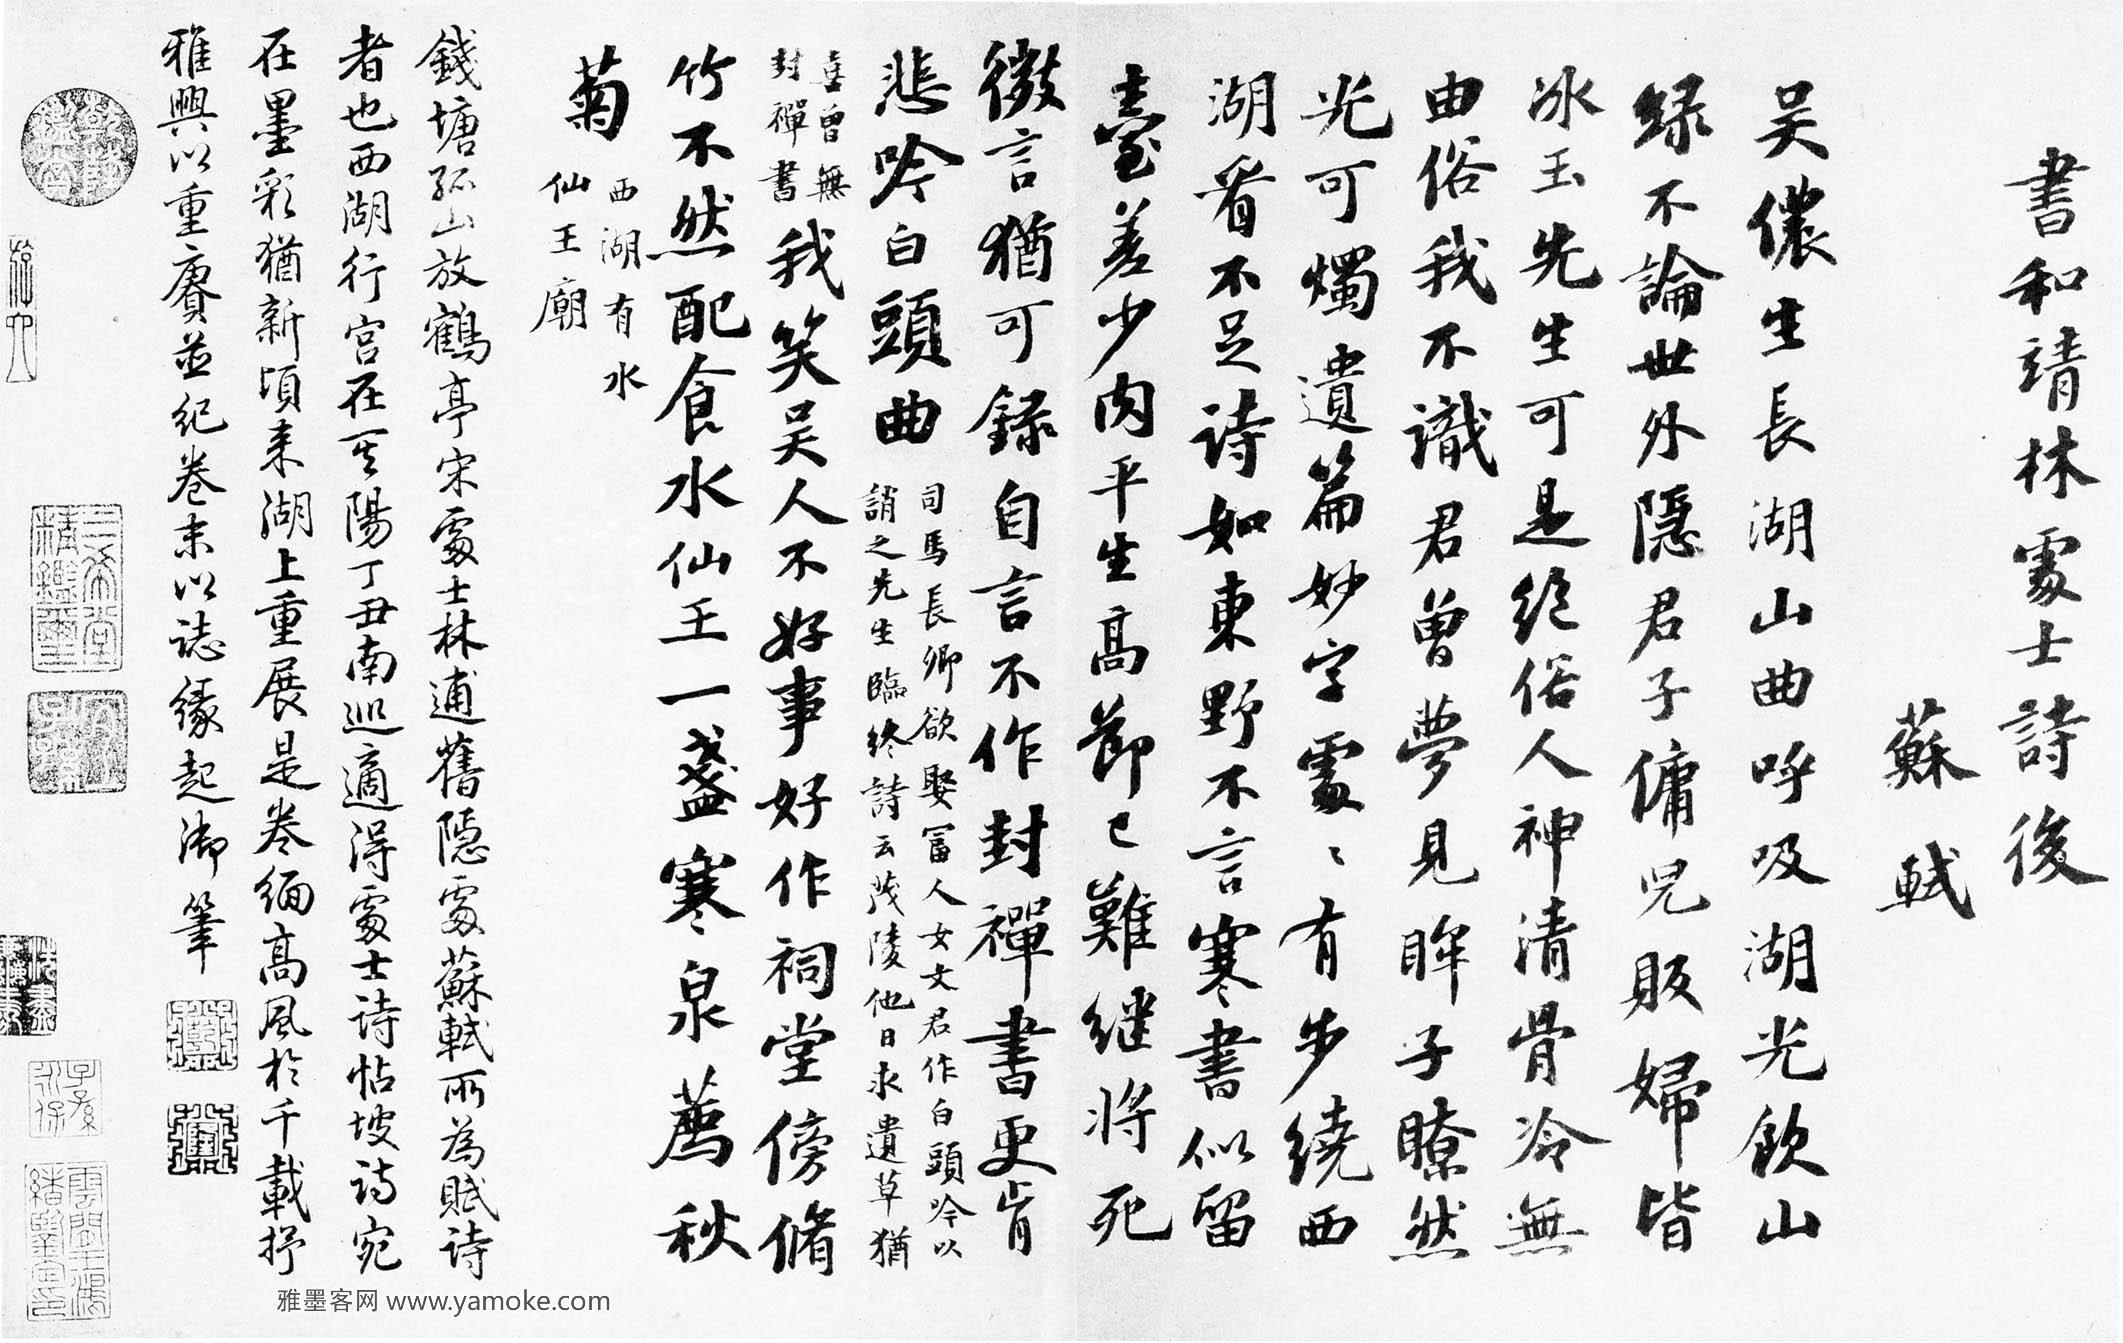 書和靖林處士詩後
蘇軾
吴儂生長湖山曲呼吸湖光飲山
緑不論世外隱君子傭兒販婦皆
冰玉先生可是絕俗人神清骨冷無
由俗我不識君曾夢見眸子瞭然
光可燭遺篇妙字處〻有步繞西
湖看不足詩如東野不言寒書似留
臺差少肉平生高節已難继將死
微言猶可録自言不作封禪書更肯
悲吟白頭曲
司馬長卿欲娶富人女文君作白頭吟以
誚之先生臨终詩云茂陵他日求遺草猶
喜曾無
封禪書
我笑吴人不好事好作祠堂傍脩
竹不然配食水仙王一盞寒泉薦秋
菊
西湖有水
仙王廟
錢塘孤山放鶴亭宋處士林逋舊隱處蘇軾所為賦詩
者也西湖行宮在其陽丁丑南巡適得處士詩帖坡詩宛
在墨彩猶新頃来湖上重展是卷緬高風於千載抒
雅興以重賡並紀卷末以誌緣起御筆
三希堂
精鑑璽
宜子孫
乾隆
鑑賞
子孫
永保
雅墨客网 www.yamoke.com